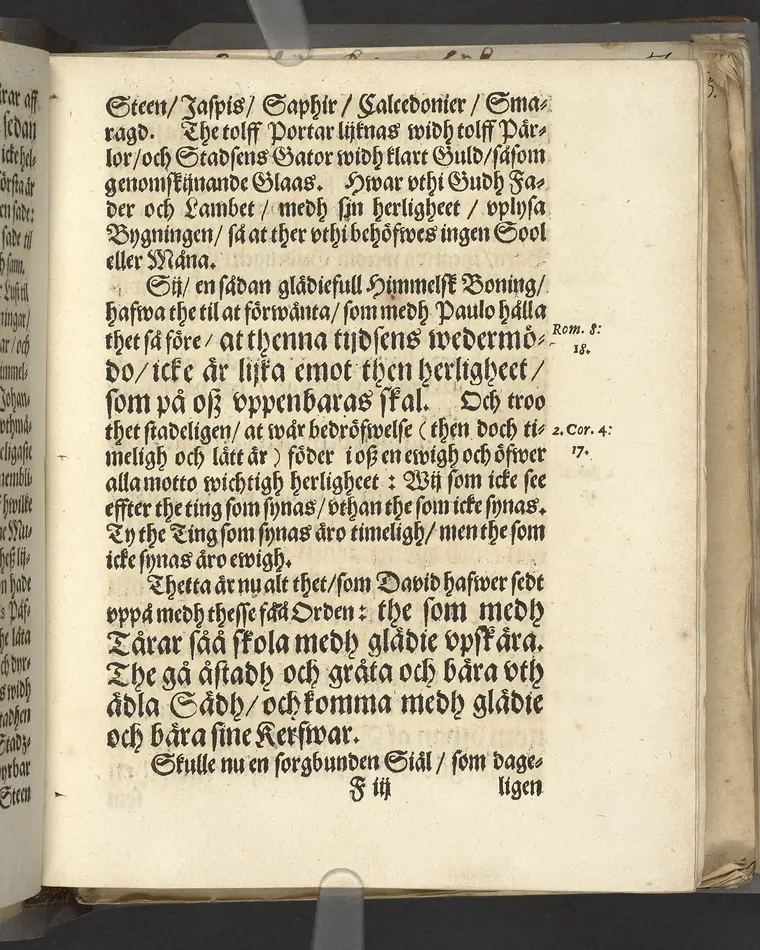 Steen/ Jaspis/ Saphir/ Calcedonier/ Sma-
ragd. The tolff Portar lijknas widh tolff Pär-
lor/och Stadsens Gator widh klart Guld/såsom
genomskijnande Glaas. Hwar vthi Gudh Fa-
der och Lambet/ medh sijn herligheet/ vplysa
Bygningen/ så at ther vthi behöfwes ingen Sool
eller Måna.
Sij/ en sådan glädiefull Himmelsk Boning/
hafwa the til at förwänta/ som medh Paulo hålla
thet så före/ at thenna tijdsens wedermö-
do/ icke är lijka emot then herligheet/
som på oß vppenbaras skal. Och troo
Rom. 8:
18.
thet stadeligen/ at wår bedröfwelse (then doch ti-
meligh och lätt är) föder i oß en ewigh och öfwer
alla motto wichtigh herligheet: Wij som icke see
2. Cor. 4:
17.
effter the ting som synas/ vthan the som icke synas.
Ty the Ting som synas äro timeligh/ men the som
icke synas äro ewigh.
Thetta är nu alt thet/ som David hafwer sedt
vppå medh thesse fåå Orden: the som medh
Tårar såå skola medh glädie vpskära.
The gå åstadh och gråta och bära vth
ädla Sädh/ och komma medh glädie
och bära sine Kerfwar.
Skulle nu en sorgbunden Siäl/ som dage-
F iij ligen
rar aff
sedan
icke hel-
örsta är
en sade:
sade til
ningar/
ar/ och
Johan-
hwilke
n hade
he låta
s widh
tadhen
Stadz-
yrbar
Steen